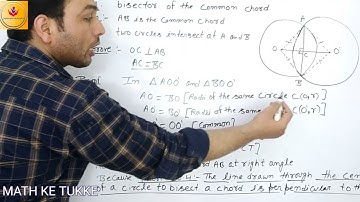 bisector of the Common chord
AB is the Common chord
two circles intersect at A and B
OC ⊥ AB
AC = BC
A
O
O'
B
In △AOO' and △BOO'
AO = BO [Radii of the same Circle C(O,r)]
AO' = BO' [Radii of the same C(O',r)]
OO' [Common]
AB at right angle
Because The line drawn through the cen
of a circle to bisect a chord is perpendicular to
MATH KE TUKKE